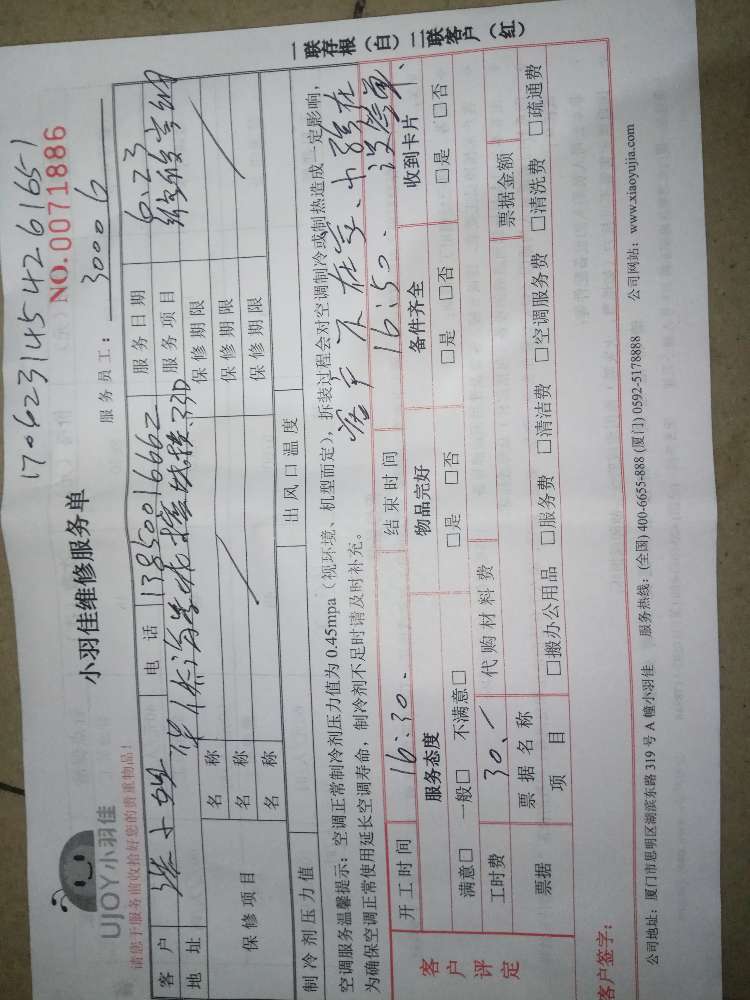 170623145426165 1
UJOY小羽佳
小羽佳维修服务单
NO.0071886
请您于服务前收拾好您的贵重物品！
服务员工：30006
一联存根（白） 二联客户（红）
客户 张小姐 电话 13850016662 服务日期 6.23
地址 服务项目 维修
保修项目 名称 保修期限
名称 保修期限
名称 保修期限
制冷剂压力值 出风口温度
空调服务温馨提示：空调正常制冷剂压力值为 0.45mpa（视环境、机型而定），拆装过程会对空调制冷或制热造成一定影响，
为确保空调正常使用延长空调寿命，制冷剂不足时请及时补充。
客户不在家、小孩在
没签单、
客户评定
开工时间 16:30. 结束时间 16:50.
服务态度 物品完好 备件齐全 收到卡片
满意□ 一般□ 不满意□ □是 □否 □是 □否 □是 □否
工时费 30.- 代购材料费 票据金额
票据 票据名称
项目 □搬办公用品 □服务费 □清洁费 □空调服务费 □清洗费 □疏通费
客户签字：
公司地址：厦门市思明区湖滨东路 319 号 A 幢小羽佳 服务热线：(全国) 400-6655-888 (厦门) 0592-5178888 公司网站：www.xiaoyujia.com